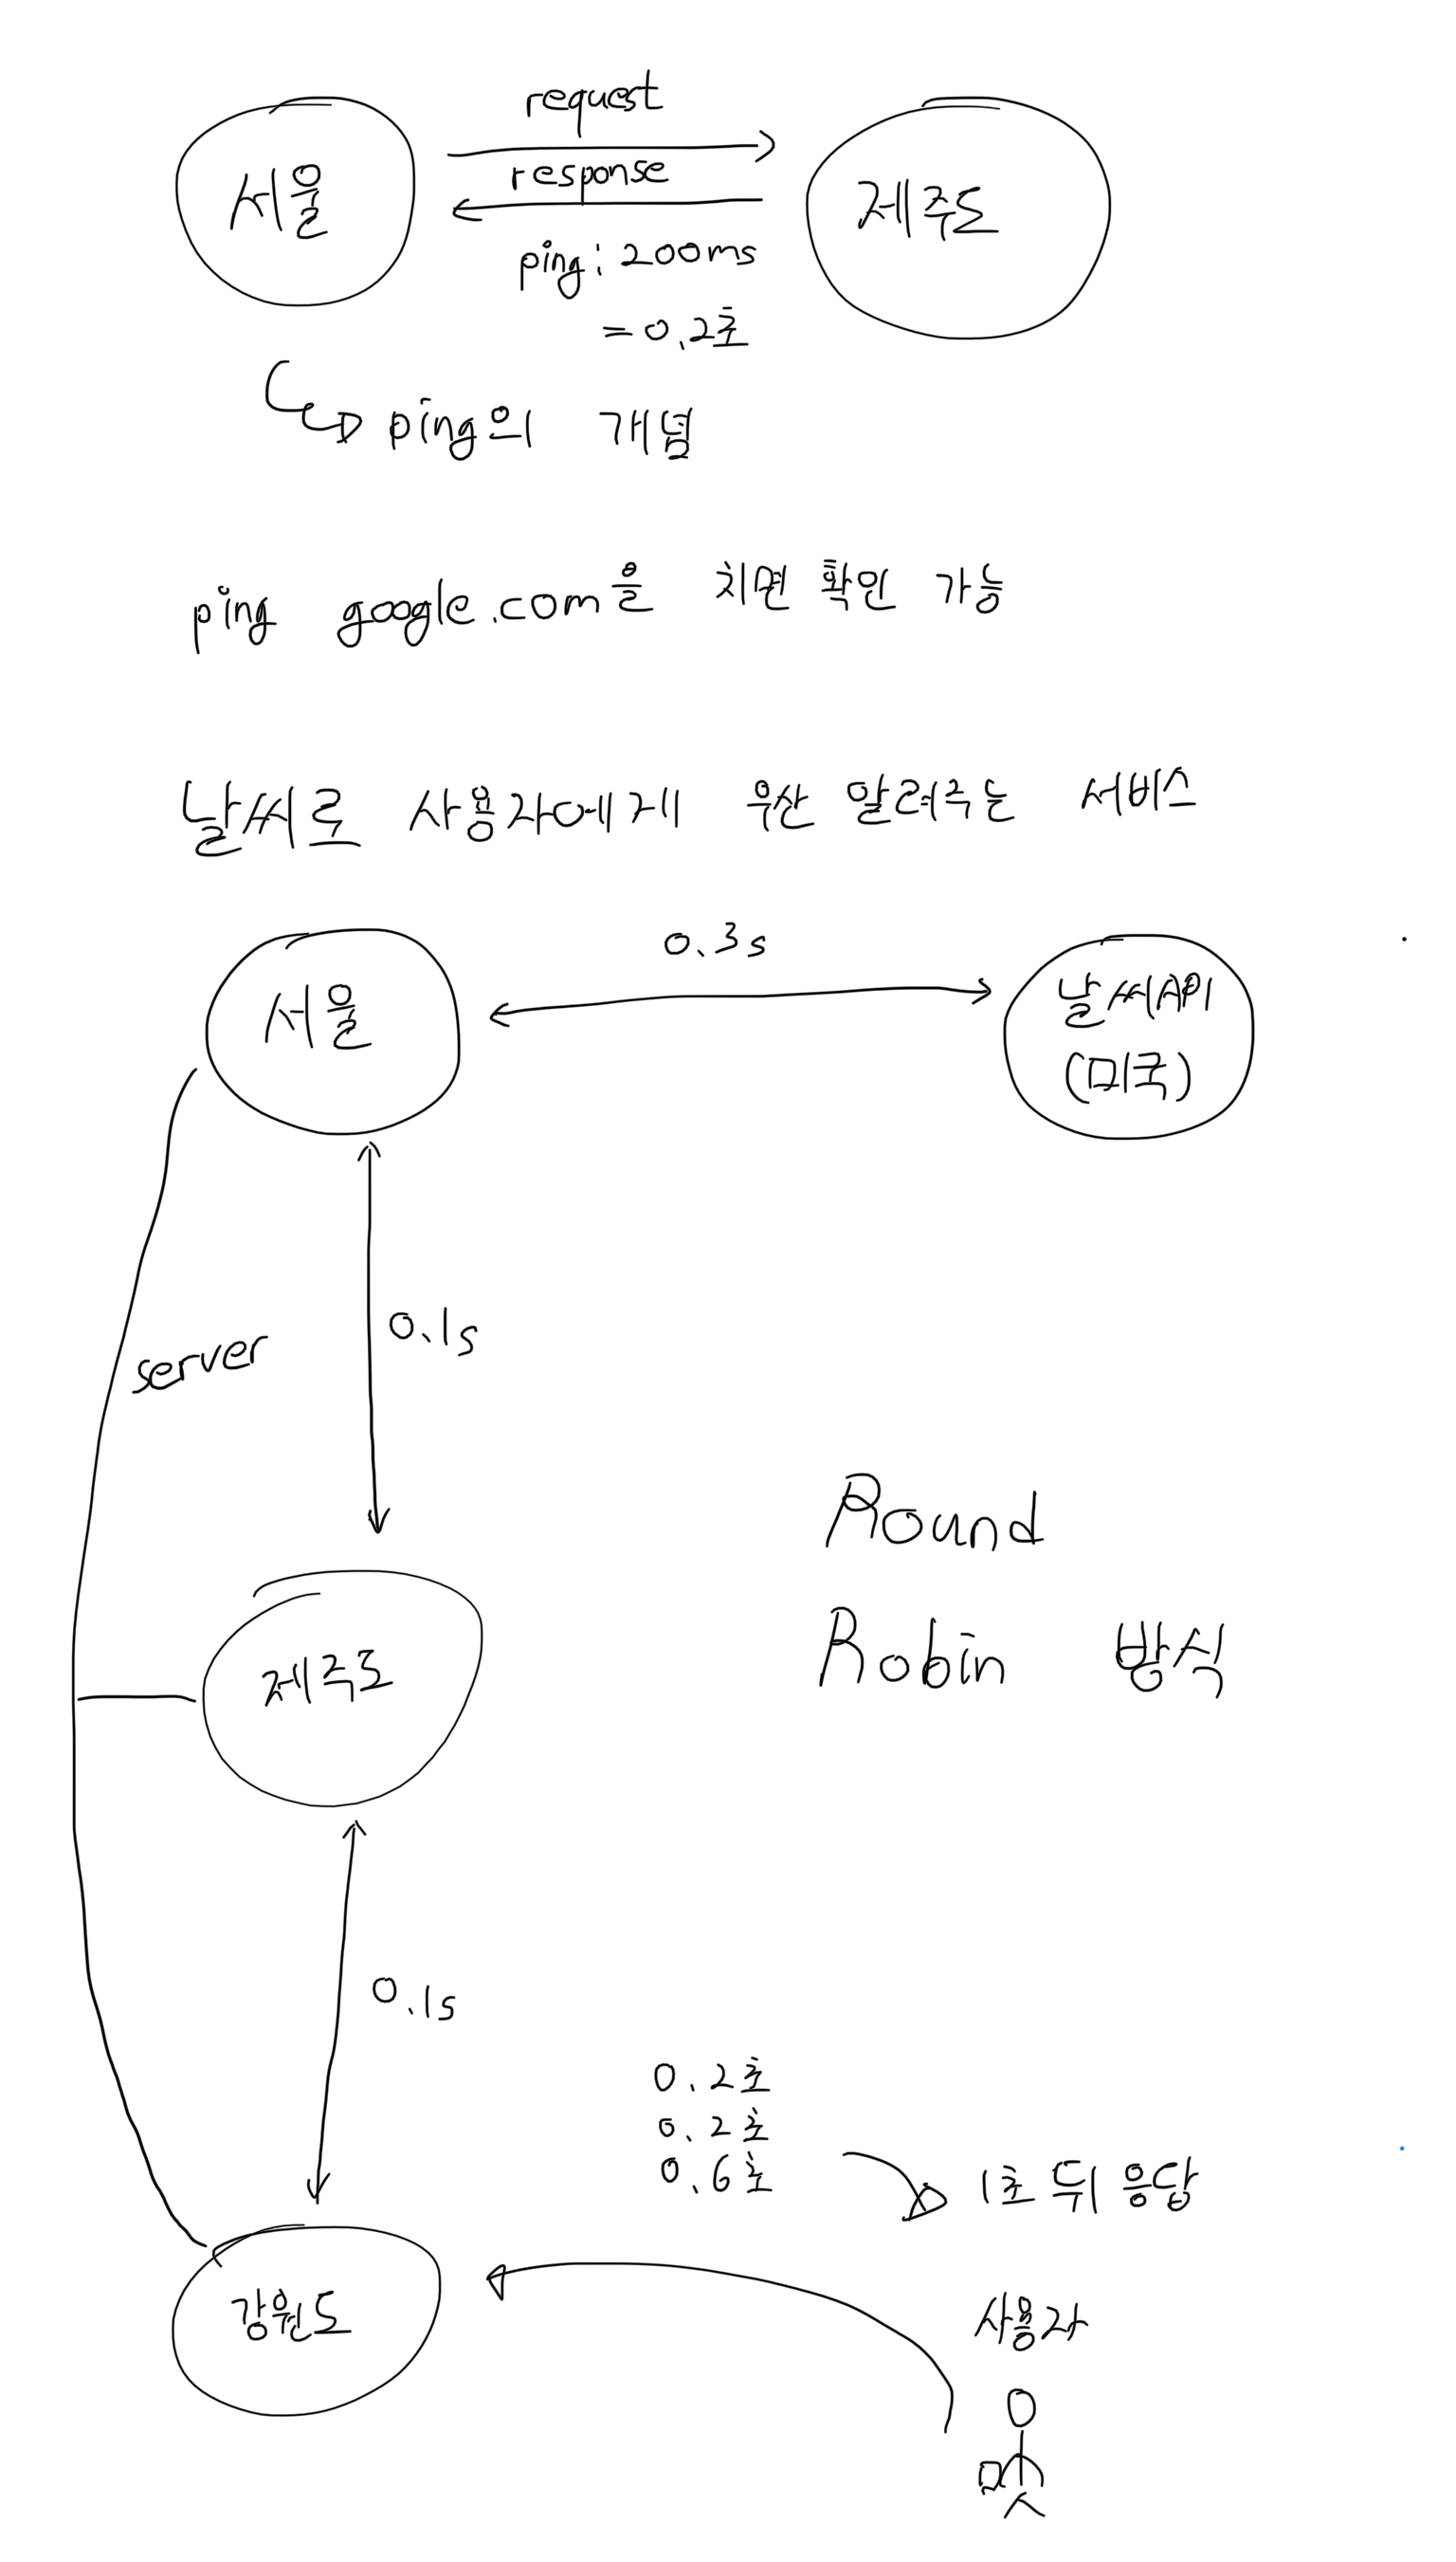 request
서울
response
제주도
ping: 200ms
= 0.2초
ping의 개념
ping google.com을 치면 확인 가능
날씨로 사용자에게 우산 알려주는 서비스
0.3s
서울
날씨API
(미국)
0.1s
server
Round
Robin 방식
제주도
0.1s
0.2초
0.2초
0.6초
1초 뒤 응답
강원도
사용자